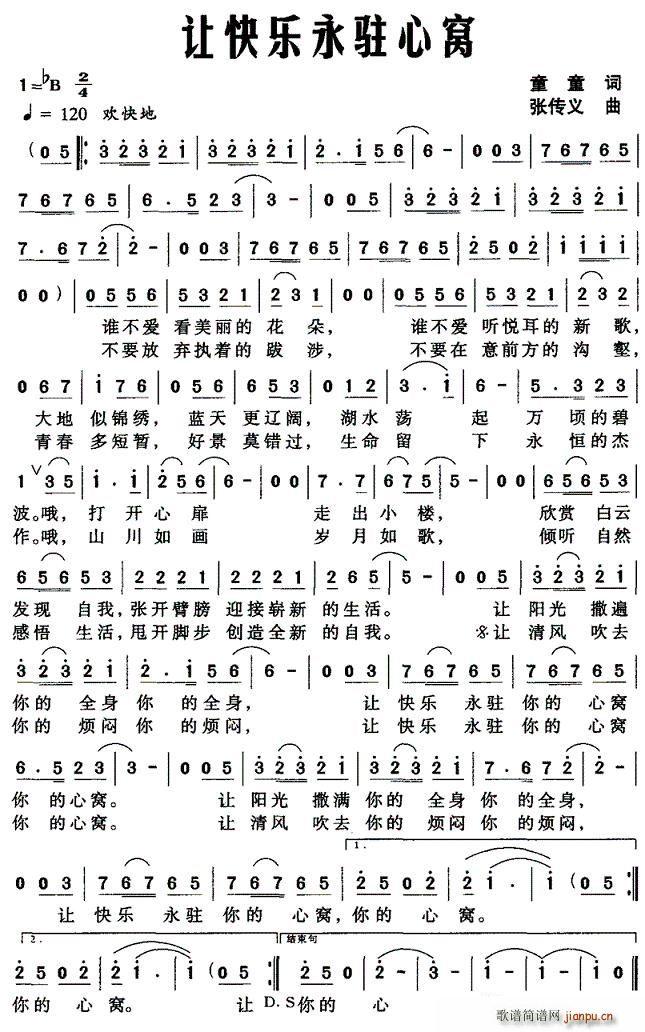 让快乐永驻心窝
1=♭B 2/4
童童 词
♩= 120 欢快地
张传义 曲
(05 ‖: 3 2 3 2 1 | 3 2 3 2 1 | 2 . 1 5 6 | 6 - | 0 0 3 | 7 6 7 6 5 |
7 6 7 6 5 | 6 . 5 2 3 | 3 - | 0 0 5 | 3 2 3 2 1 | 3 2 3 2 1 |
7 . 6 7 2 | 2 - | 0 0 3 | 7 6 7 6 5 | 7 6 7 6 5 | 2 5 0 2 | 1 1 1 1 |
0 0 ) | 0 5 5 6 | 5 3 2 1 | 2 3 1 | 0 0 | 0 5 5 6 | 5 3 2 1 | 2 3 2 |
谁不爱 看美丽的 花 朵, 谁不爱 听悦耳的 新 歌,
不要放 弃执着的 跋 涉, 不要在 意前方的 沟 壑,
0 6 7 | 1 7 6 | 0 5 6 | 6 5 3 | 0 1 2 | 3 . 1 | 6 - | 5 . 3 2 3 |
大地 似锦绣, 蓝天 更辽阔, 湖水 荡 起 万 顷的碧
青春 多短暂, 好景 莫错过, 生命 留 下 永 恒的杰
1 ∨ 3 5 | 1 . 1 | 2 5 6 | 6 - | 0 0 | 7 . 7 | 6 7 5 | 5 - | 0 0 | 6 5 6 5 3 |
波。哦, 打 开 心 扉 走 出 小 楼, 欣赏 白云
作。哦, 山 川 如 画 岁 月 如 歌, 倾听 自然
6 5 6 5 3 | 2 2 2 1 | 2 2 2 1 | 2 6 5 | 5 - | 0 0 5 | 3 2 3 2 1 |
发现 自我, 张开臂膀 迎接崭新 的生活。 让 阳光 撒遍
感悟 生活, 甩开脚步 创造全新 的自我。 𝄋让 清风 吹去
3 2 3 2 1 | 2 . 1 5 6 | 6 - | 0 0 3 | 7 6 7 6 5 | 7 6 7 6 5 |
你的 全身 你 的全身, 让 快乐 永驻 你的 心窝
你的 烦闷 你 的烦闷, 让 快乐 永驻 你的 心窝
6 . 5 2 3 | 3 - | 0 0 5 | 3 2 3 2 1 | 3 2 3 2 1 | 7 . 6 7 2 | 2 - |
你 的心窝。 让 阳光 撒满 你的 全身 你 的全身,
你 的心窝。 让 清风 吹去 你的 烦闷 你 的烦闷,
1.
0 0 3 | 7 6 7 6 5 | 7 6 7 6 5 | 2 5 0 2 | 2 1 . | 1 (0 5 :‖
让 快乐 永驻 你的 心窝, 你的 心 窝。
2. 结束句
2 5 0 2 | 2 1 . 1 | (0 5 :‖ 2 5 0 2 | 2 - | 1 - | 1 - | 1 0 ‖
你的 心 窝。 让 D.S 你的 心
歌谱简谱网
jianpu.cn